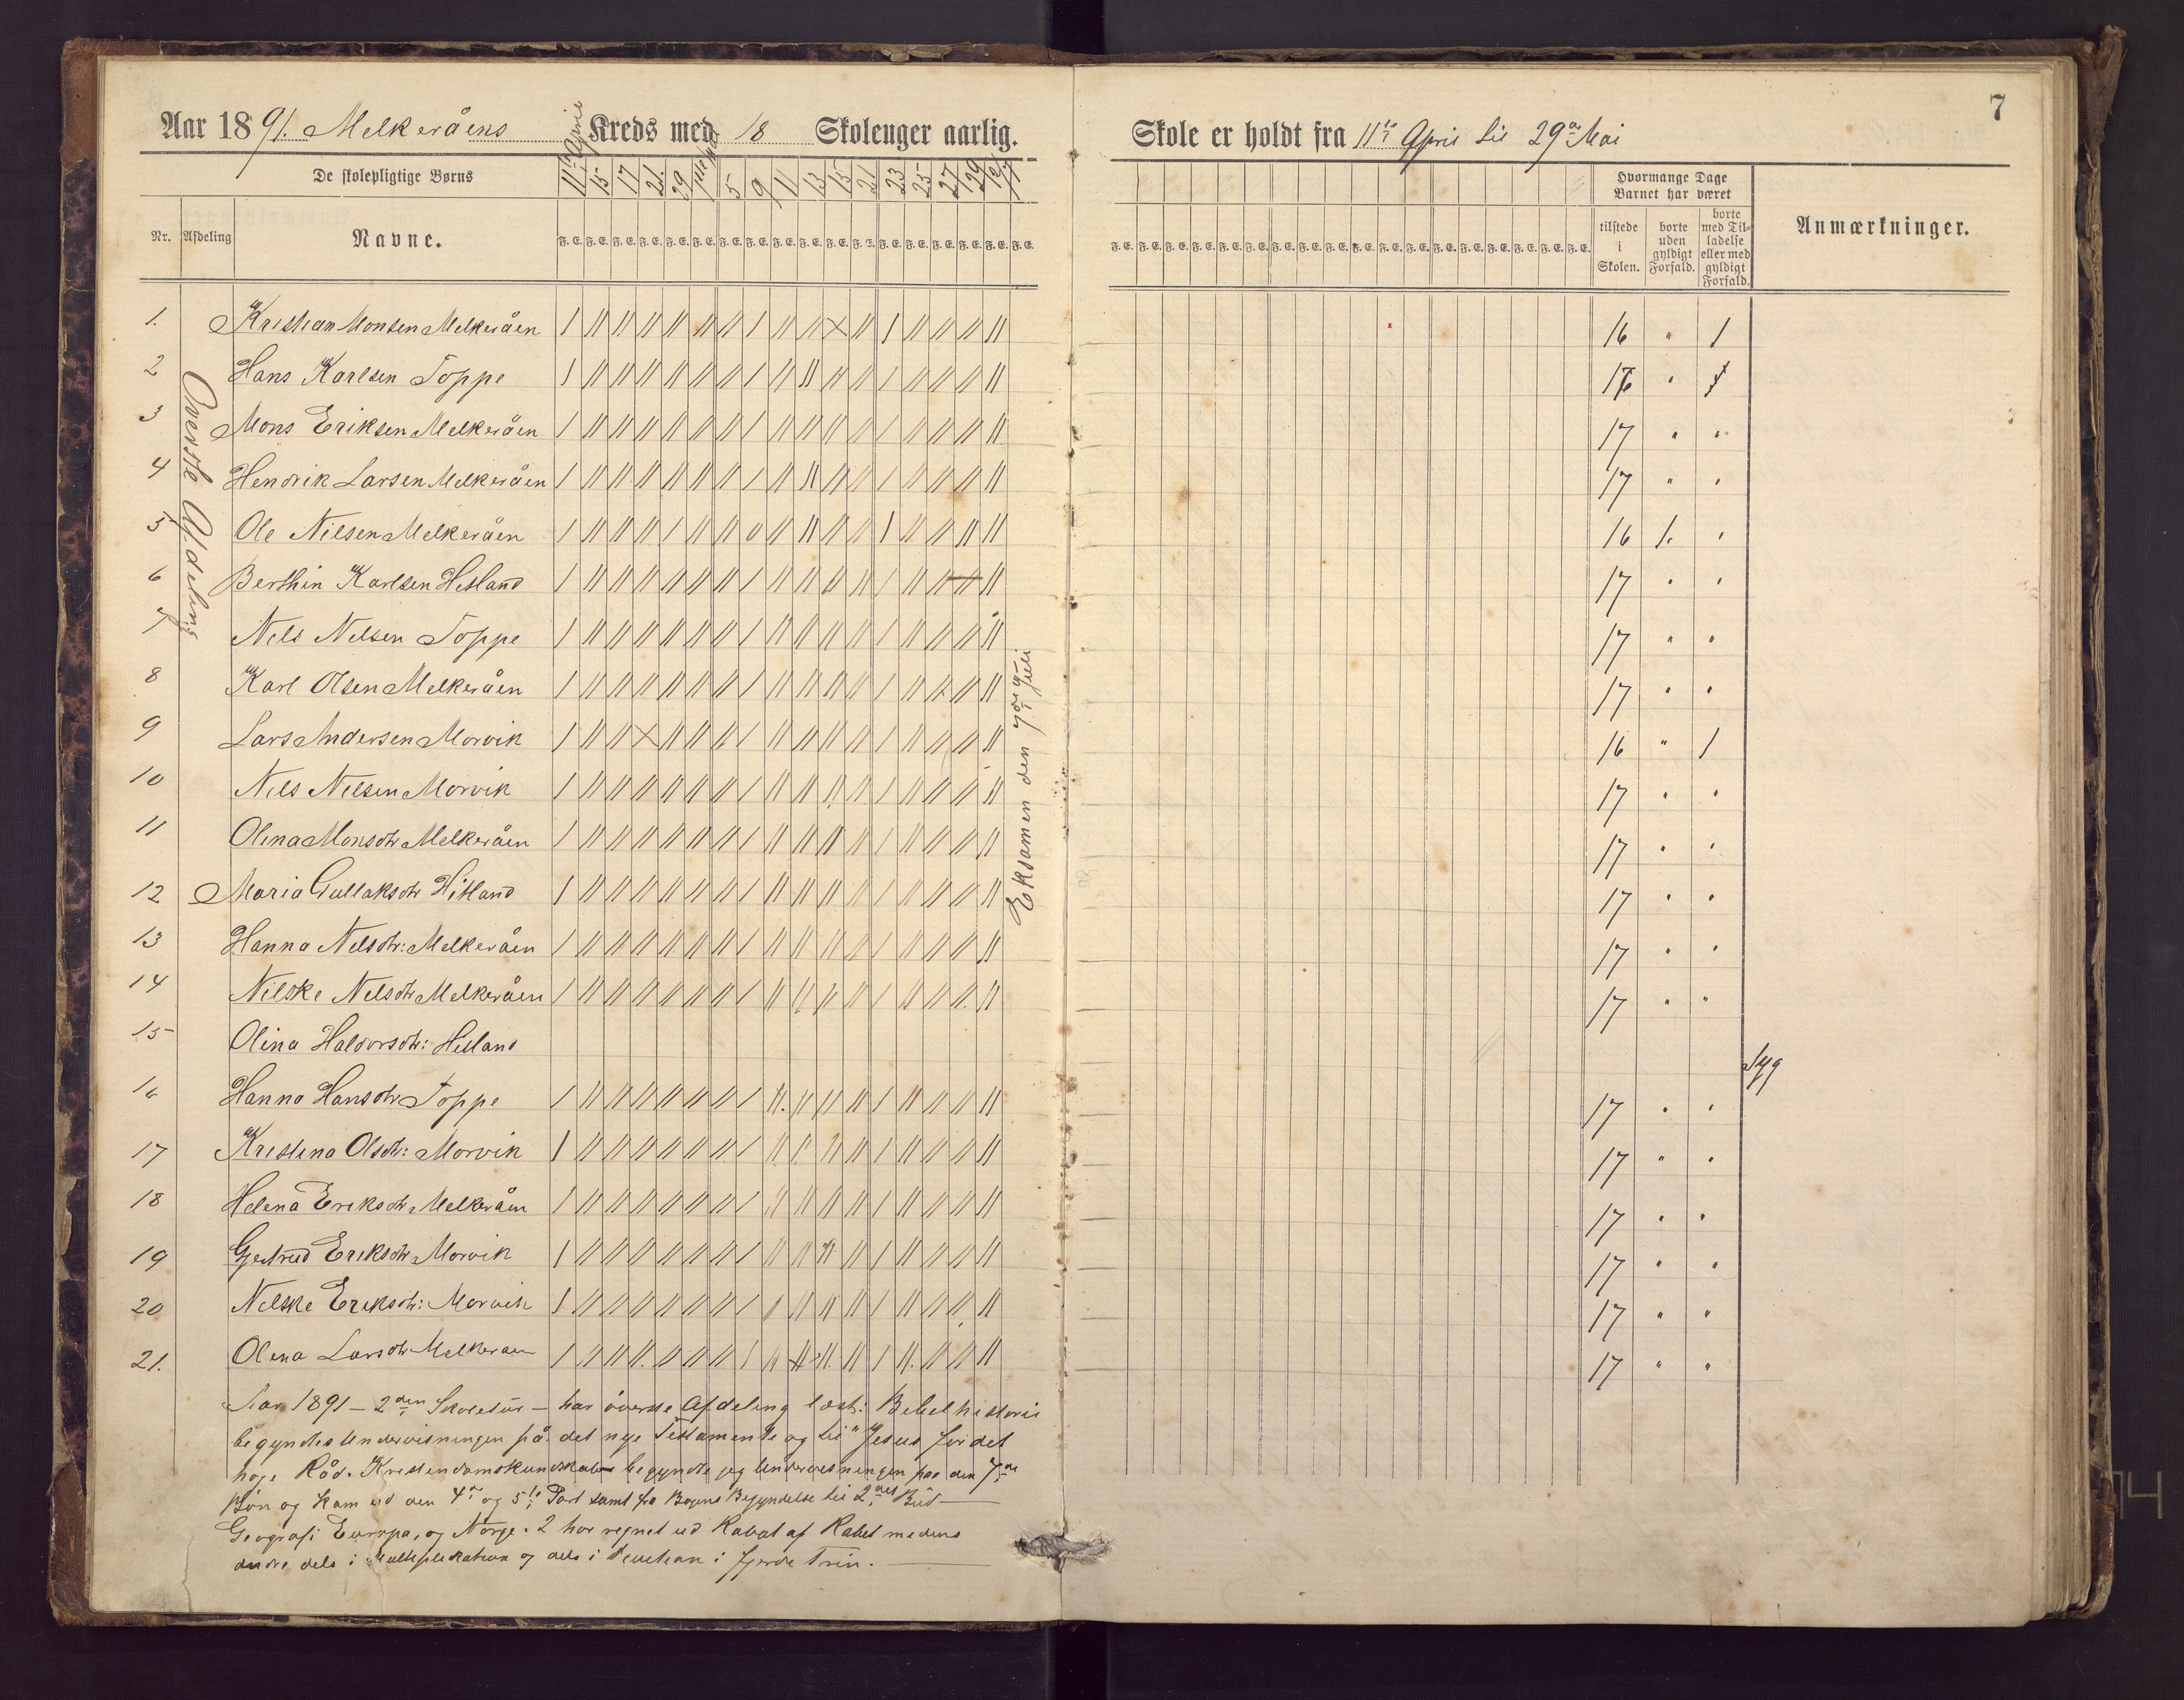 7
Aar 1891. Melkeråens Kreds med 18 Skolenger aarlig.
Skole er holdt fra 11te April til 29de Mai
De skolepligtige Børns
11te April 15 17 21 29 1ste Mai 5 9 11 13 15 21 23 25 27 29
Hvormange Dage Barnet har været
Nr. Afdeling Navne.
F. E. F. E. F. E. F. E. F. E. F. E. F. E. F. E. F. E. F. E. F. E. F. E. F. E. F. E. F. E. F. E. F. E. F. E.
tilstede i Skolen.
borte uden gyldigt Forfald.
borte med Tilladelse eller med gyldigt Forfald.
Anmærkninger.
Øverste Afdeling
1. Kristian Monsen Melkeråen 16 " 1
2 Hans Karlsen Toppe 17 "
3 Mons Eriksen Melkeråen 17 " "
4 Hendrik Larsen Melkeråen 17 " "
5 Ole Nilsen Melkeråen 16 1. "
6 Berthin Karlsen Hitland 17 " "
7 Nils Nilsen Toppe 17 " "
8 Karl Olsen Melkeråen 17 " "
9 Lars Andersen Morvik 16 " 1
10 Nils Nilsen Morvik 17 " "
11 Olina Monsdtr Melkeråen 17 " "
12 Maria Gullaksdtr Hitland 17 " "
13 Hanna Nilsdtr: Melkeråen 17 " "
14 Nilske Nilsdtr Melkeråen 17 " "
15 Olina Haldorsdtr: Hitland syg
16 Hanna Hansdtr Toppe 17 " "
17 Kristina Olsdtr: Morvik 17 " "
18 Helena Eriksdtr Melkeråen 17 " "
19 Gjertrud Eriksdtr Morvik 17 " "
20 Nilske Eriksdtr: Morvik 17 " "
21. Olina Larsdtr Melkeraen 17 " "
Eksamen den 7de Juli
Aar 1891 – 2den Skoletur – har øverste Afdeling læst: Bibelhistorie
begyndtes Undervisningen på det nye Testamente og til "Jesus for det
høje Råd. Kristendomskundskab begyndte jeg Undervisningen paa den 7de
Bøn og kom ud den 4de og 5te Part samt fra Bogens Begyndelse til 2det Bud –
Geografi Europa, og Norge. 2 har regnet ud Rabat af Rabat medens
andre dels i Multiplikation og dels i Division i fjerde Trin.